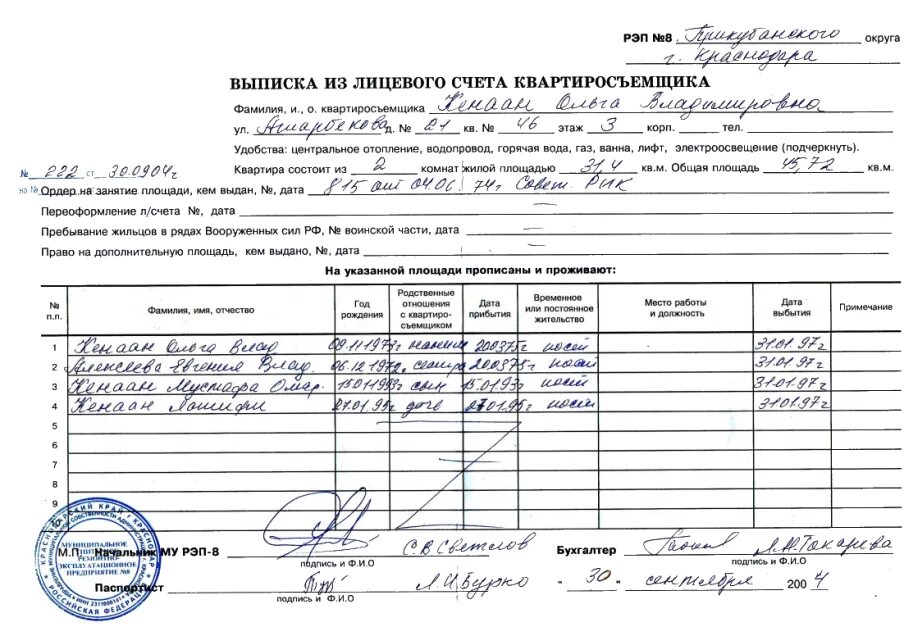 РЭП №8 Прикубанского округа
г. Краснодара
ВЫПИСКА ИЗ ЛИЦЕВОГО СЧЕТА КВАРТИРОСЪЕМЩИКА
Фамилия, и., о. квартиросъемщика Кенаан Ольга Владимировна
ул. Ашарбекова д. № 21 кв. № 46 этаж 3 корп. тел.
Удобства: центральное отопление, водопровод, горячая вода, газ, ванна, лифт, электроосвещение (подчеркнуть).
№ 222 от 30.09.04г Квартира состоит из 2 комнат жилой площадью 31,4 кв.м. Общая площадь 45,72 кв.м.
на № Ордер на занятие площади, кем выдан, №, дата 815 от 04.06.74г Совет. РИК
Переоформление л/счета №, дата —
Пребывание жильцов в рядах Вооруженных сил РФ, № воинской части, дата —
Право на дополнительную площадь, кем выдано, №, дата —
На указанной площади прописаны и проживают:
№ п.п. Фамилия, имя, отчество Год рождения Родственные отношения с квартиросъемщиком Дата прибытия Временное или постоянное жительство Место работы и должность Дата выбытия Примечание
1 Кенаан Ольга Влад 200375г 31.01.97г
2 Алексеева Евгения Влад. 06.12 сестра 200375г 31.01.97г
3 Кенаан Мустафа Омар. 15.01.1993г сын 15.01.93г 31.01.97г
4 Кенаан 21.01.95г дочь 01.95г 31.01.97г
5
6
7
8
9
10
М.П. Начальник МУ РЭП-8 С В Светлов Бухгалтер Л.М.Токарева
подпись и Ф.И.О подпись и Ф.И.О
Паспортист Л.И.Бурко - 30 - сентября 2004
подпись и Ф.И.О
КРАСНОДАРСКИЙ КРАЙ г. КРАСНОДАР
МУНИЦИПАЛЬНОЕ
РЕМОНТНО-
ЭКСПЛУАТАЦИОННОЕ
ПРЕДПРИЯТИЕ №8
РОССИЙСКАЯ ФЕДЕРАЦИЯ